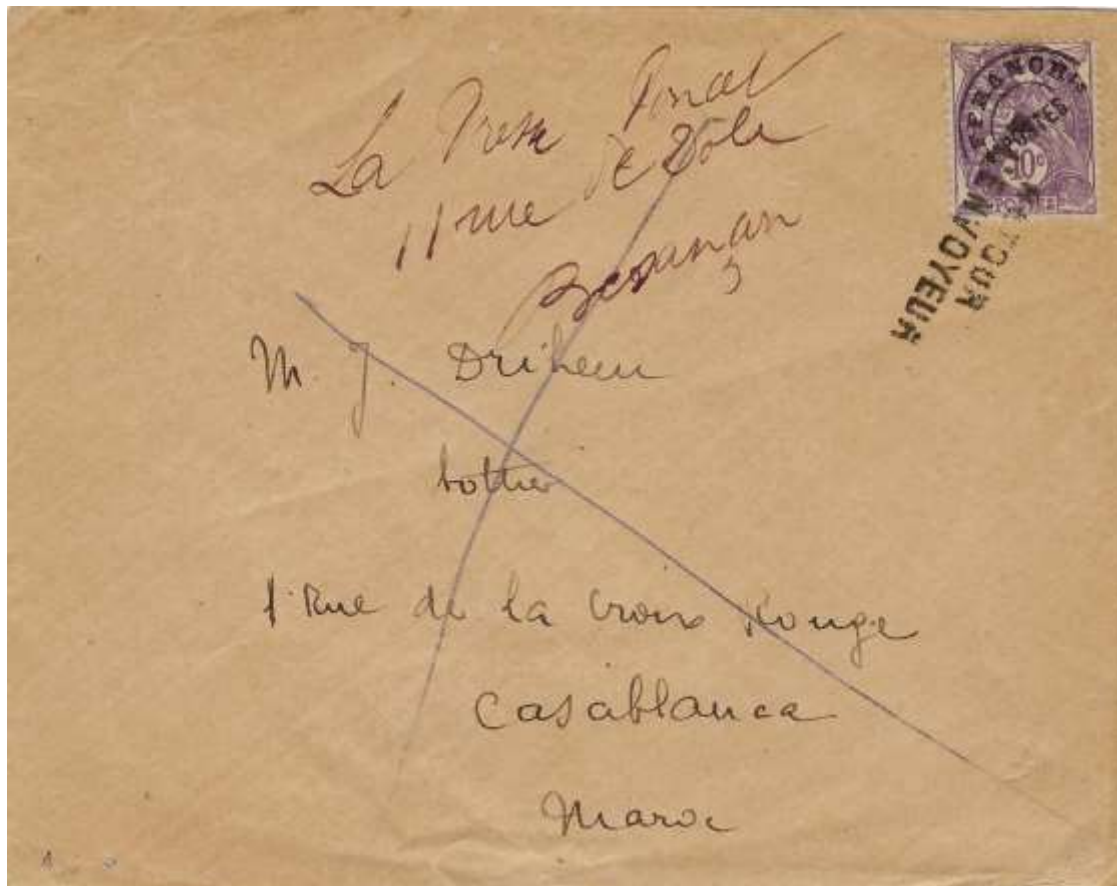 La Presse
11 rue de Dole
Besançon
M. J. Drihem
bottier
1 Rue de la Croix Rouge
Casablanca
Maroc
AFFRANCHts
POSTES
10c
RETOUR
ENVOYEUR